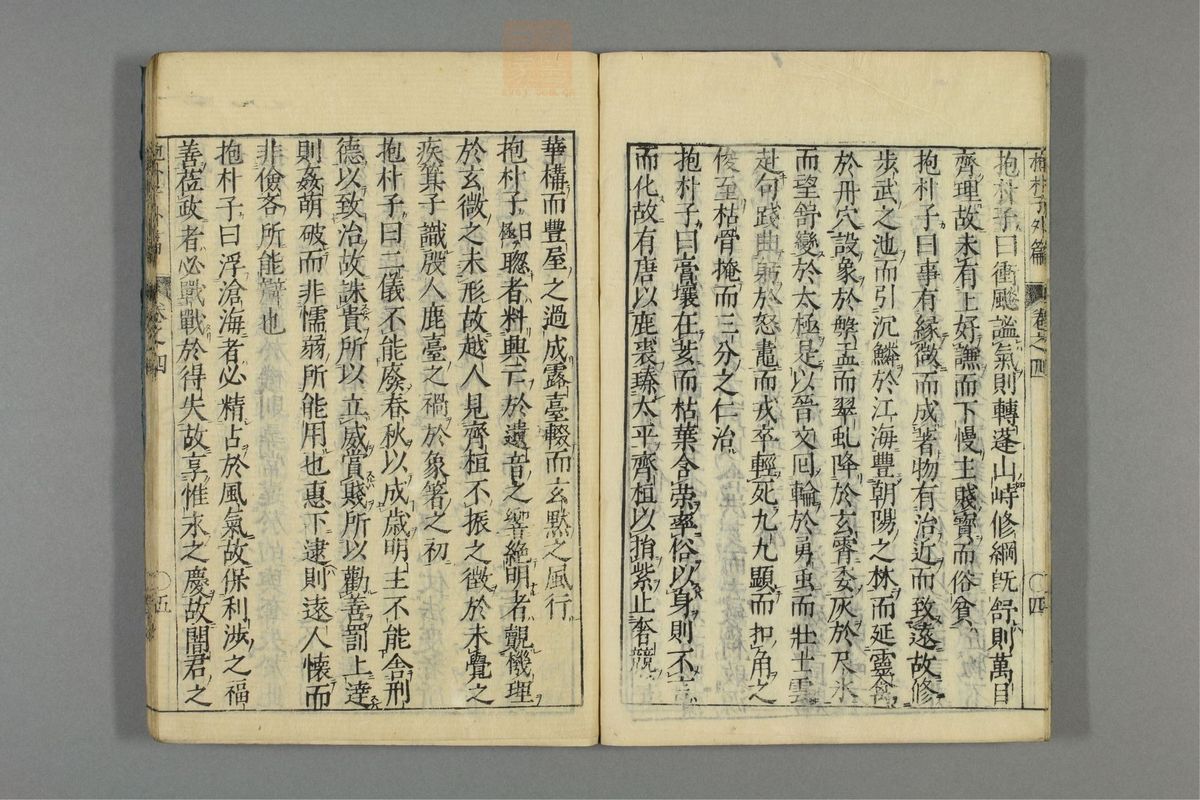 抱朴子曰衝飈謐氣則轉蓬山峙修綱既舒則萬目
齊理故未有上好謙而下慢主賤寶而俗貧
抱朴子曰事有緣微而成著物有治近而致遠故修
步武之池而引沉鱗於江海豐朝陽之林而延靈禽
於丹穴設象於槃盂而翠虬降於玄霄委灰於尺水
而望舒變於太極是以晉文回輪於勇虫而壯士雲
赴句踐曲躬於怒鼃而戎卒輕死九九顯而扣角之
俊至枯骨掩而三分之仁洽
抱朴子曰膏壤在荄而枯葉含榮率俗以身則不言
而化故有唐以鹿裘臻太平齊桓以捐紫止奢競
華構而豐屋之過成露臺輟而玄黙之風行
抱朴子曰極聰者料興亡於遺音之響絶明者覿機理
於玄微之未形故越人見齊桓不振之徴於未覺之
疾箕子識殷人鹿臺之禍於象箸之初
抱朴子曰二儀不能廢春秋以成歳明主不能舎刑
德以致治故誅貴所以立威賞賤所以勸善罰上逹
則姦萌破而非懦弱所能用也惠下逮則遠人懷而
非儉吝所能辦也
抱朴子曰浮滄海者必精占於風氣故保利渉之福
善莅政者必戰戰於得失故享惟永之慶故闇君之
抱朴子外篇 卷之四 〇四
卷之四 〇五